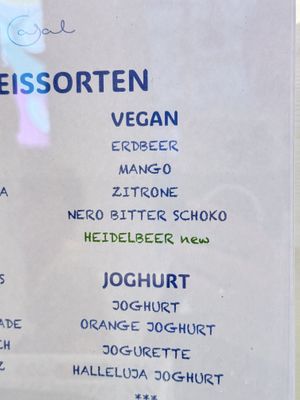 EISSORTEN
VEGAN
ERDBEER
MANGO
ZITRONE
NERO BITTER SCHOKO
HEIDELBEER new
JOGHURT
JOGHURT
ORANGE JOGHURT
JOGURETTE
HALLELUJA JOGHURT
***